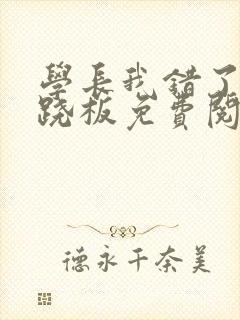 學長我錯了
跷板免費閱
德永千奈美